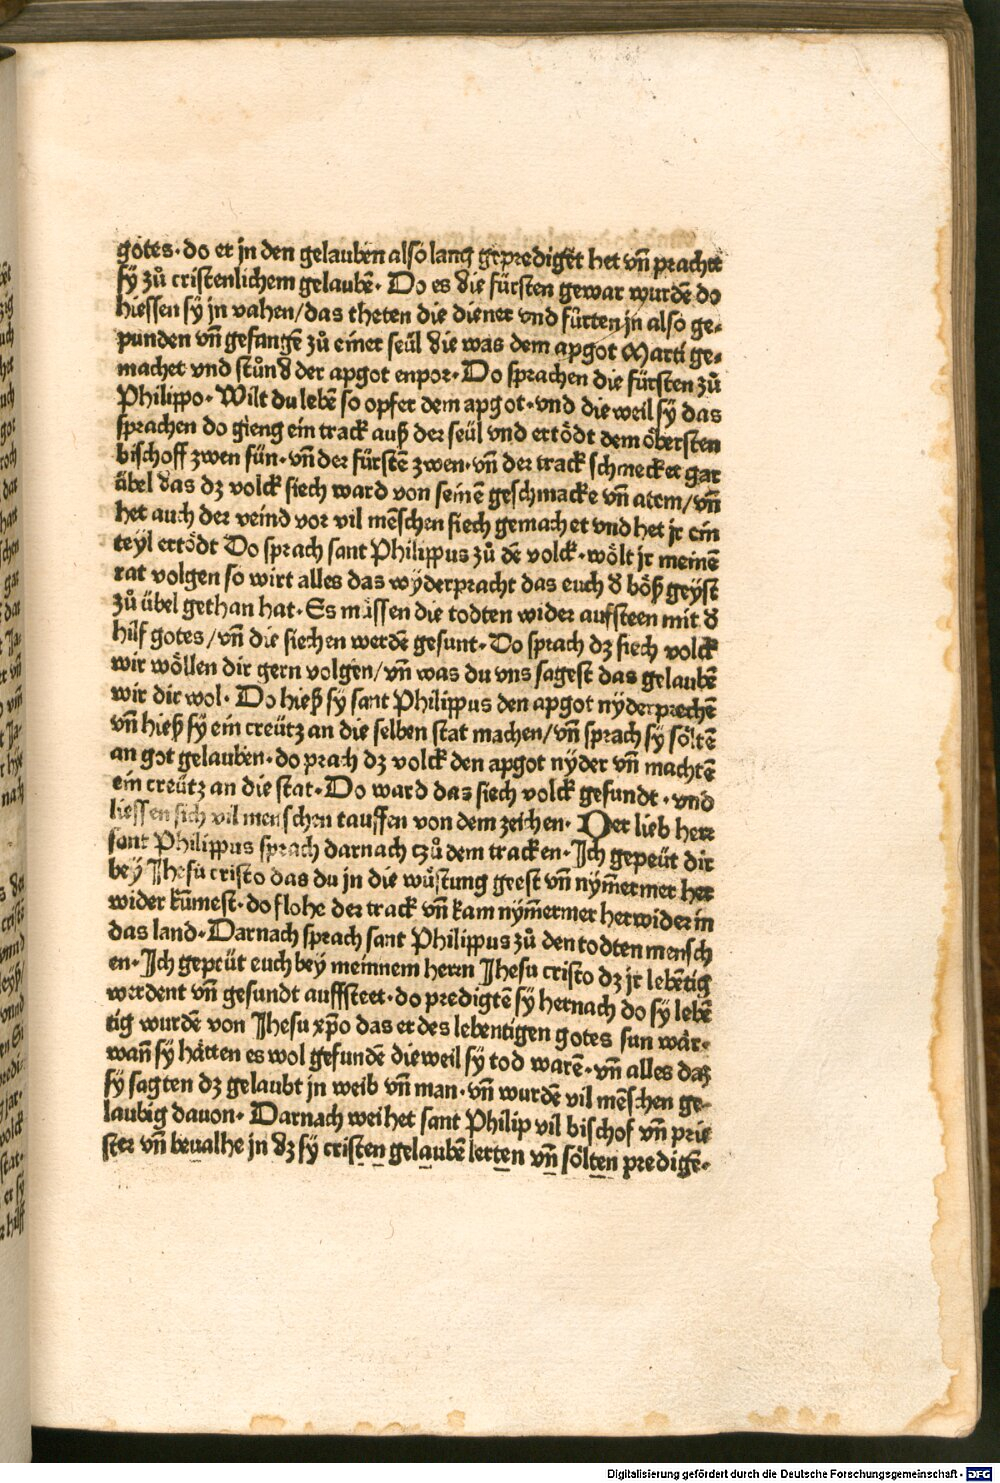 gotes· do er jn den gelauben also lang geprediget het vñ prachte
sÿ zů cristenlichem gelaubē· Do es die fürsten gewar wurdē do
hiessen sÿ jn vahen/das theten die diener vnd fůrten jn also ge⸗
punden vñ gefangē zů einer seül die was dem apgot Marti ge⸗
machet vnd stůnd der apgot enpor· Do sprachen die fürsten zů
Philippo· Wilt du lebē so opfer dem apgot· vnd die weil sÿ das
sprachen do gieng ein track auß der seül vnd ertödt dem öbersten
bischoff zwen sün· vñ der fürstē zwen· vñ der track schmecket gar
übel das dz volck siech ward von seinē geschmacke vñ atem/vñ
het auch der veind vor vil mēschen siech gemachet vnd het jr ein
teyl ertödt Do sprach sant Philippus zů dē volck· wölt jr meinē
rat volgen so wirt alles das wÿderpracht das euch d̕ böß geÿst
zů übel gethan hat· Es müssen die todten wider aufsteen mit d̕
hilf gotes/vñ die siechen werdē gesunt· Do sprach dz siech volck
wir wöllen dir gern volgen/vñ was du vns sagest das gelaubē
wir dir wol· Do hieß sÿ sant Philippus den apgot nÿderprechē
vñ hieß sÿ ein creütz an die selben stat machen/vñ sprach sÿ söltē
an got gelauben· do prach dz volck den apgot nÿder vñ machtē
ein creütz an die stat· Do ward das siech volck gesundt· vnd
liessen sich vil menschen tauffen von dem zeichen· Der lieb herr
sant Philippus sprach darnach czů dem tracken· Ich gepeüt dir
beÿ Jhesu cristo das du jn die wůstung geest vñ nÿm̄ermer her
wider kūmest· do flohe der track vñ kam nÿm̄ermer herwider in
das land· Darnach sprach sant Philippus zů den todten mensch
en· Ich gepeüt euch beÿ meinnem herrn Jhesu cristo dz jr lebētig
werdent vñ gesundt auffsteet· do predigtē sÿ hernach do sÿ lebē
tig wurdē von Jhesu xp̄o das er des lebentigen gotes sun wär·
wañ sÿ hätten es wol gefundē die weil sÿ tod warē· vñ alles daz
sÿ sagten dz gelaubt jn weib vñ man· vñ wurdē vil mēschen ge⸗
laubig dauon· Darnach weihet sant Philip vil bischof vñ prie
ster vñ beualhe jn dz sÿ cristen gelaubē lerten vñ sölten predigē·
Digitalisierung gefördert durch die Deutsche Forschungsgemeinschaft - DFG